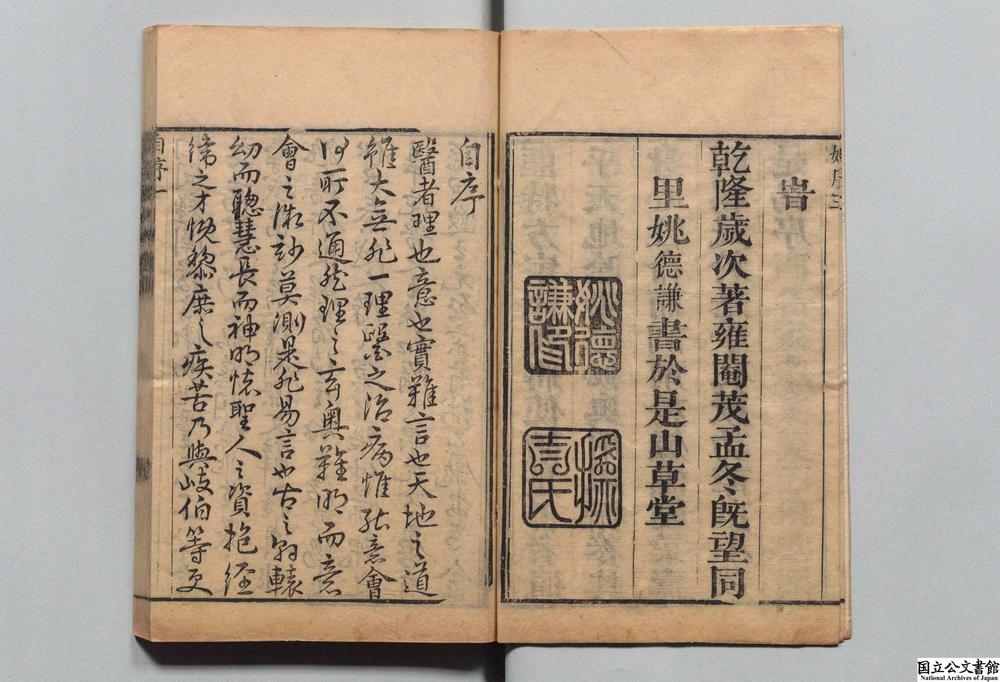 姚序三
旹
乾隆歲次著雍閹茂孟冬既望同
里姚德謙書於是山草堂
姚德
謙印
自序
醫者理也意也實難言也天地之道
雖大無非一理醫之治病惟在意會
何所不通然理之玄奧難明而意
會之微妙莫測是非易言也古之軒轅
幼而聰慧長而神明懷聖人之資抱經
緯之才憫黎庶之疾苦乃與岐伯等更
自序一
国立公文書館
National Archives of Japan